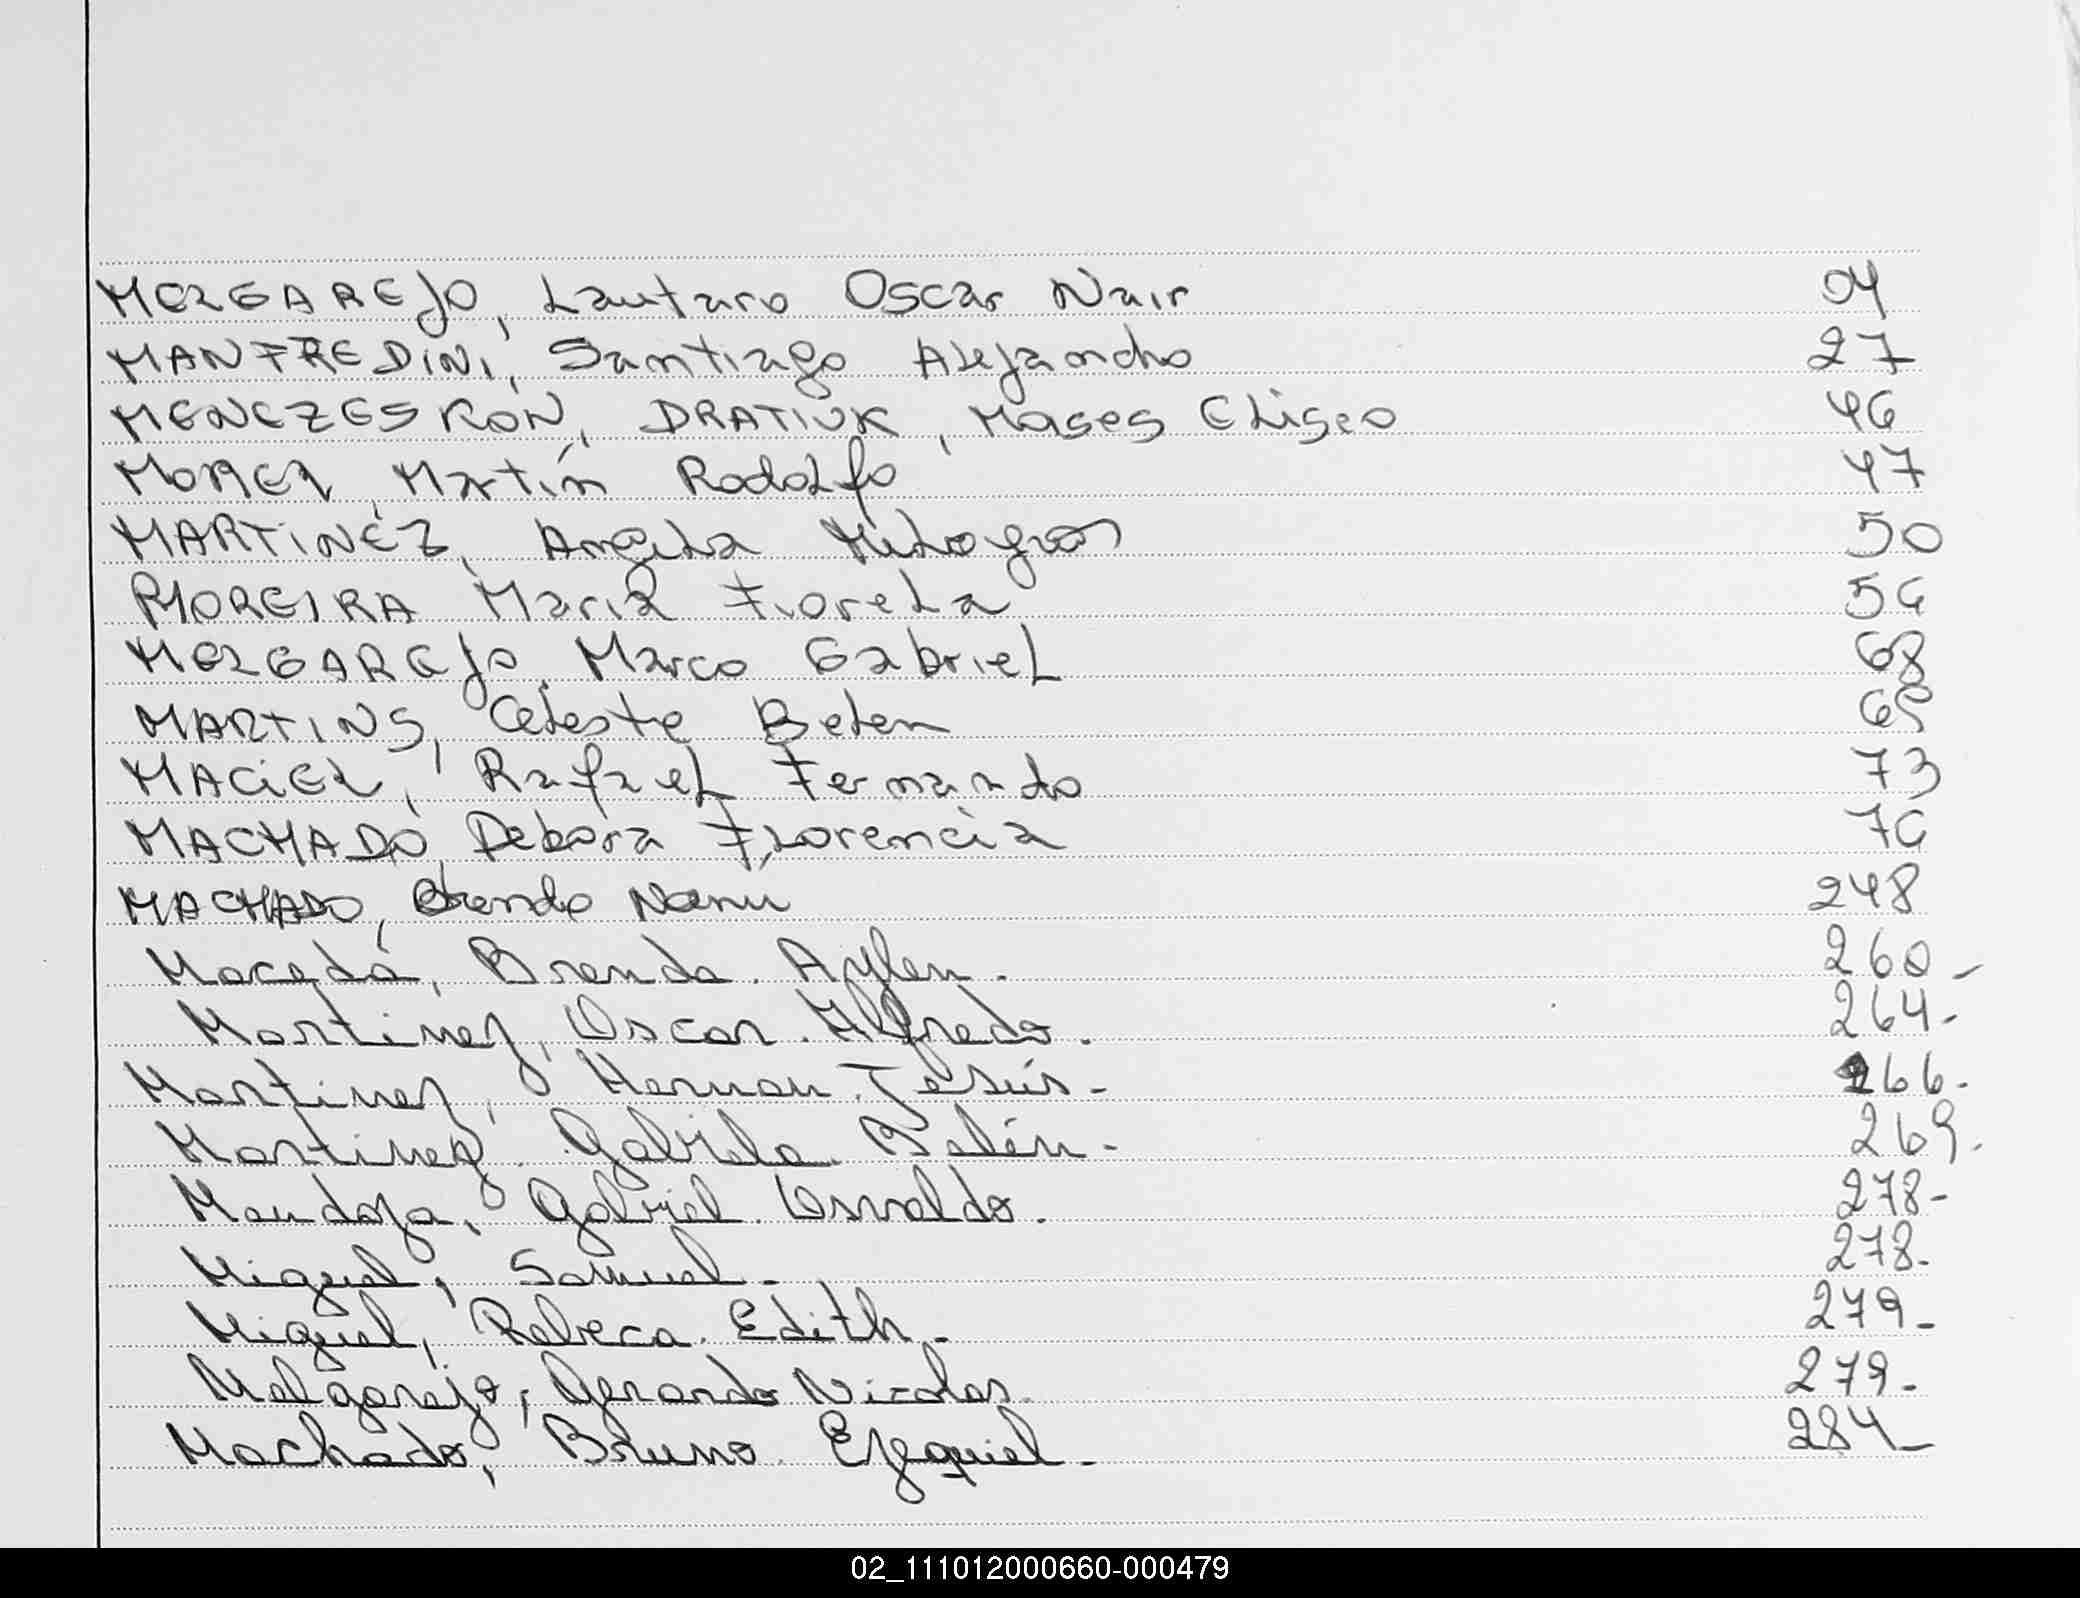 MELGAREJO, Lautaro Oscar Nair 04
MANFREDINI, Santiago Alejandro 27
MENEZES RON, DRATIUK, Moses Eliseo 46
MOREL, Martín Rodolfo 47
MARTINEZ, Angela Milagros 50
MOREIRA Maria Fiorela 56
MELGAREJO, Marco Gabriel 68
MARTINS, Celeste Belen 69
MACIEL, Rafael Fernando 73
MACHADO, Debora Florencia 76
MACHADO, 248
Macedo, Brenda Aylen. 260-
Martinez, Oscar Alfredo. 264-
Martinez, Hernan Jesús- 266-
Martinez Gabriela Belén- 269.
Mendoza, Gabriel Osvaldo. 278-
Miguel, Samuel- 278-
Miguel, Rebeca Edith- 279-
Melgarejo, Gerardo Nicolas. 279-
Machado, Bruno Ezequiel- 284-
02_111012000660-000479